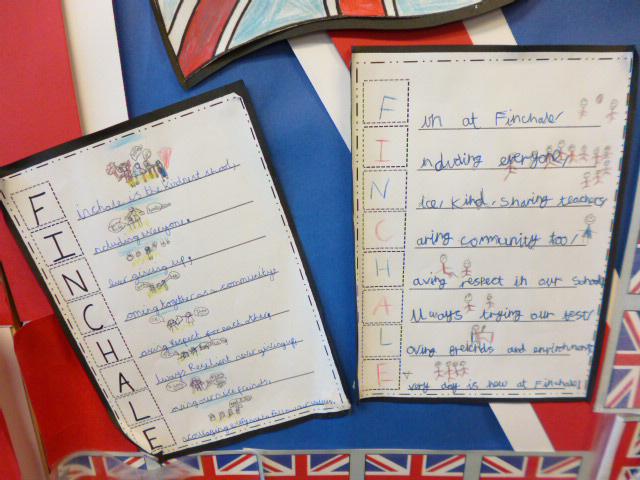 F inchale is the kindest school,
I ncluding everyone,
N ever giving up.
C oming together as a community
H aving respect for each other,
A lways Resilient never giving up
L oving our whole friends,
E
F un at Finchale!
I ncluding everyone,
N ice, kind, sharing teachers
C aring community too!
H aving respect in our school
A llways trying our best!
L oving freinds and envirnment
E very day is new at Finchale!